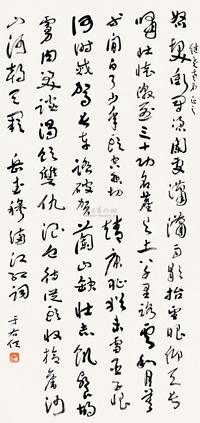 怒髮衝冠憑闌處瀟瀟雨歇抬望眼仰天長
嘯壯懷激烈三十功名塵與土八千里路雲和月莫
等閒白了少年頭空悲切靖康恥猶未雪臣子恨
何時滅駕長車踏破賀蘭山缺壯志飢餐胡
虜肉笑談渴飲血待從頭收拾舊
山河朝天闕岳武穆滿江紅詞
于右任